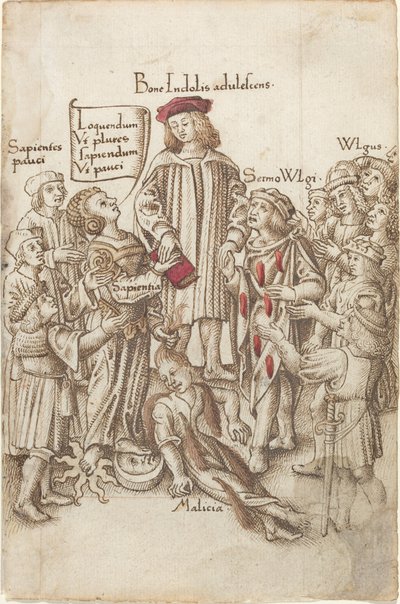 Bone Indolis adulescens.
Loquendum
Vt plures
Sapiendum
Vt pauci
Sapientes
pauci
WLgus.
Sermo WLgi.
Sapientia
Malicia.